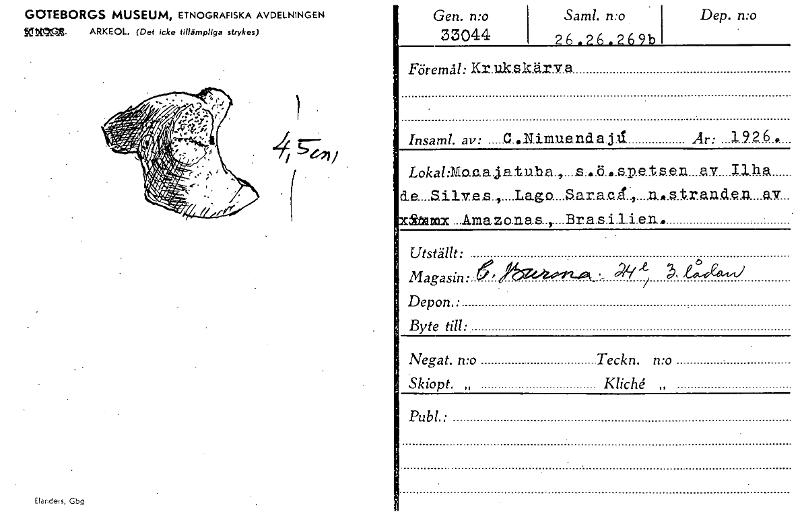 GÖTEBORGS MUSEUM, ETNOGRAFISKA AVDELNINGEN
ARKEOL. (Det icke tillämpliga strykes)
4,5cm,
Elanders, Gbg
Gen. n:o Saml. n:o Dep. n:o
33044 26.26.269b
Föremål: Krukskärva
Insaml. av: C.Nimuendajú År: 1926.
Lokal: Mocajatuba, s.ö.spetsen av Ilha
de Silves, Lago Saracá, n.stranden av
Amazonas, Brasilien.
Utställt:
Magasin: 24 3. lådan
Depon.:
Byte till:
Negat. n:o Teckn. n:o
Skiopt. „ Kliché „
Publ.: